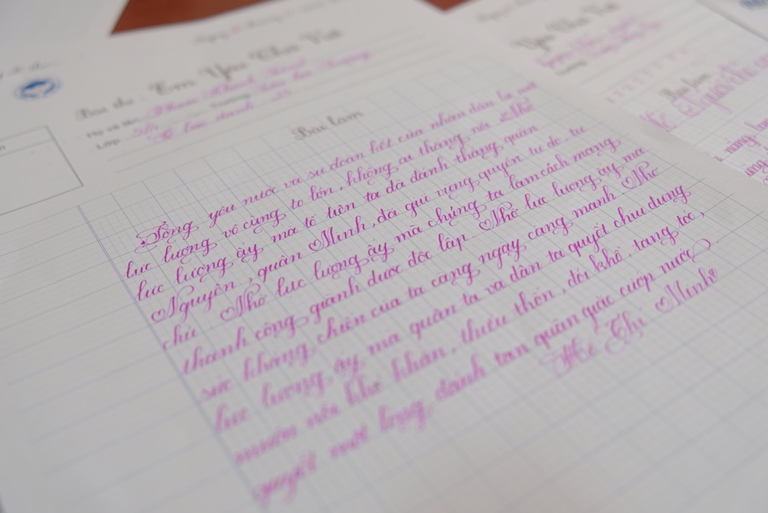 Em Yêu Chữ Việt
Họ và tên:
Lớp
Bài làm
Lòng yêu nước và sự đoàn kết của nhân dân ta
lực lượng vô cùng to lớn, không ai thắng nổi. Nhờ
lực lượng ấy, mà tổ tiên ta đã đánh thắng quân
Nguyên, quân Minh, đã giữ vững quyền tự do, tự
chủ. Nhờ lực lượng ấy mà chúng ta làm cách mạng
thành công giành được độc lập. Nhờ lực lượng ấy mà
sức kháng chiến của ta càng ngày càng mạnh. Nhờ
lực lượng ấy mà quân ta và dân ta quyết chịu đựng
muôn nỗi khó khăn, thiếu thốn, đói khổ, tang tóc,
quyết một lòng đánh tan quân giặc cướp nước.
Hồ Chí Minh
Yêu Chữ Việt
Bài làm